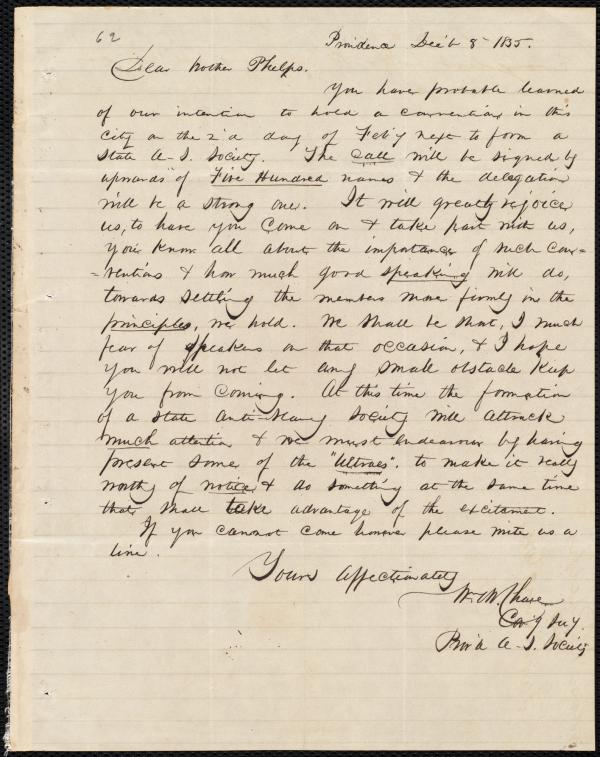 62
Providence Dec'b 8 1835.
Dear Brother Phelps.
You have probable learned
of our intention to hold a convention in this
City on the 2'd day of Feb'y next to form a
State A-S. Society. The call will be signed by
upwards of Five Hundred names & the delegation
will be a strong one. It will greatly rejoice
us, to have you come on & take part with us,
you know all about the importance of such con-
-ventions & how much good speaking will do,
towards settling the members more firmly in the
principles, we hold. We shall be short, I much
fear of speakers on that occasion, & I hope
you will not let any small obstacle keep
you from coming. At this time the formation
of a State Anti-Slavery Society will attrack
much attention & we must endeavour by having
present some of the "Ultraes". to make it really
worthy of notice & do something at the same time
that shall take advantage of the excitement.
If you cannot come however please write us a
line.
Yours Affectionately
Wm. M. Chace
Cor'g Sec'y.
Prov'd A-S. Society